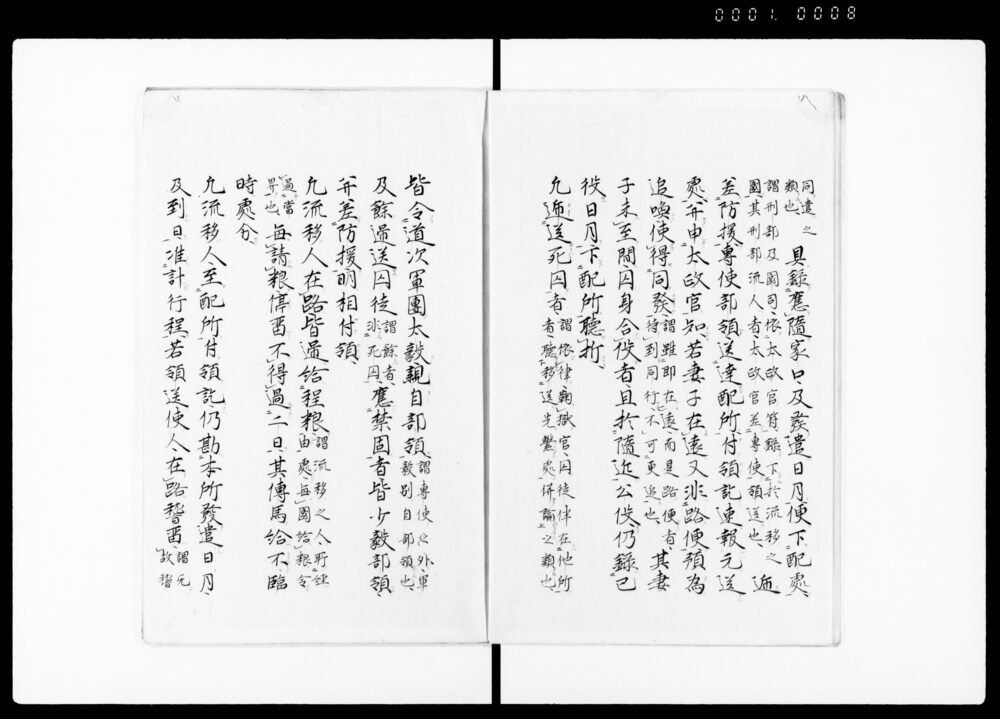 0001.0008
同遣之
類也 具録應隨家口及發遣日月便下配處
謂刑部及國司依太政官符録下於流移之
國其刑部流人者太政官差專使領送也 逓
差防援專使部領送達配所付領訖速報元送
處并申太政官知若妻子在遠又非路便預為
追喚使得同發 謂雖即在遠而是路便者
待到同行不可更追也 其妻
子未至間囚身合役者且於隨近公役仍録已
役日月下配所聽折
凡逓送死囚者 謂依律鞫獄官囚徒伴在他所
者聽移送先繫處併論之類也
皆令道次軍團大毅親自部領 謂專使之外軍
毅別自部領也
及餘逓送囚徒 謂餘者
非死囚 應禁固者皆少毅部領
并差防援明相付領
凡流移人在路皆逓給程粮 謂流移之人所經
由處毎國給粮令
過當
界也 毎請粮停留不得過二日其傳馬給不臨
時處分
凡流移人至配所付領訖仍勘本所發遣日月
及到日准計行程若領送使人在路稽留 謂元
故稽